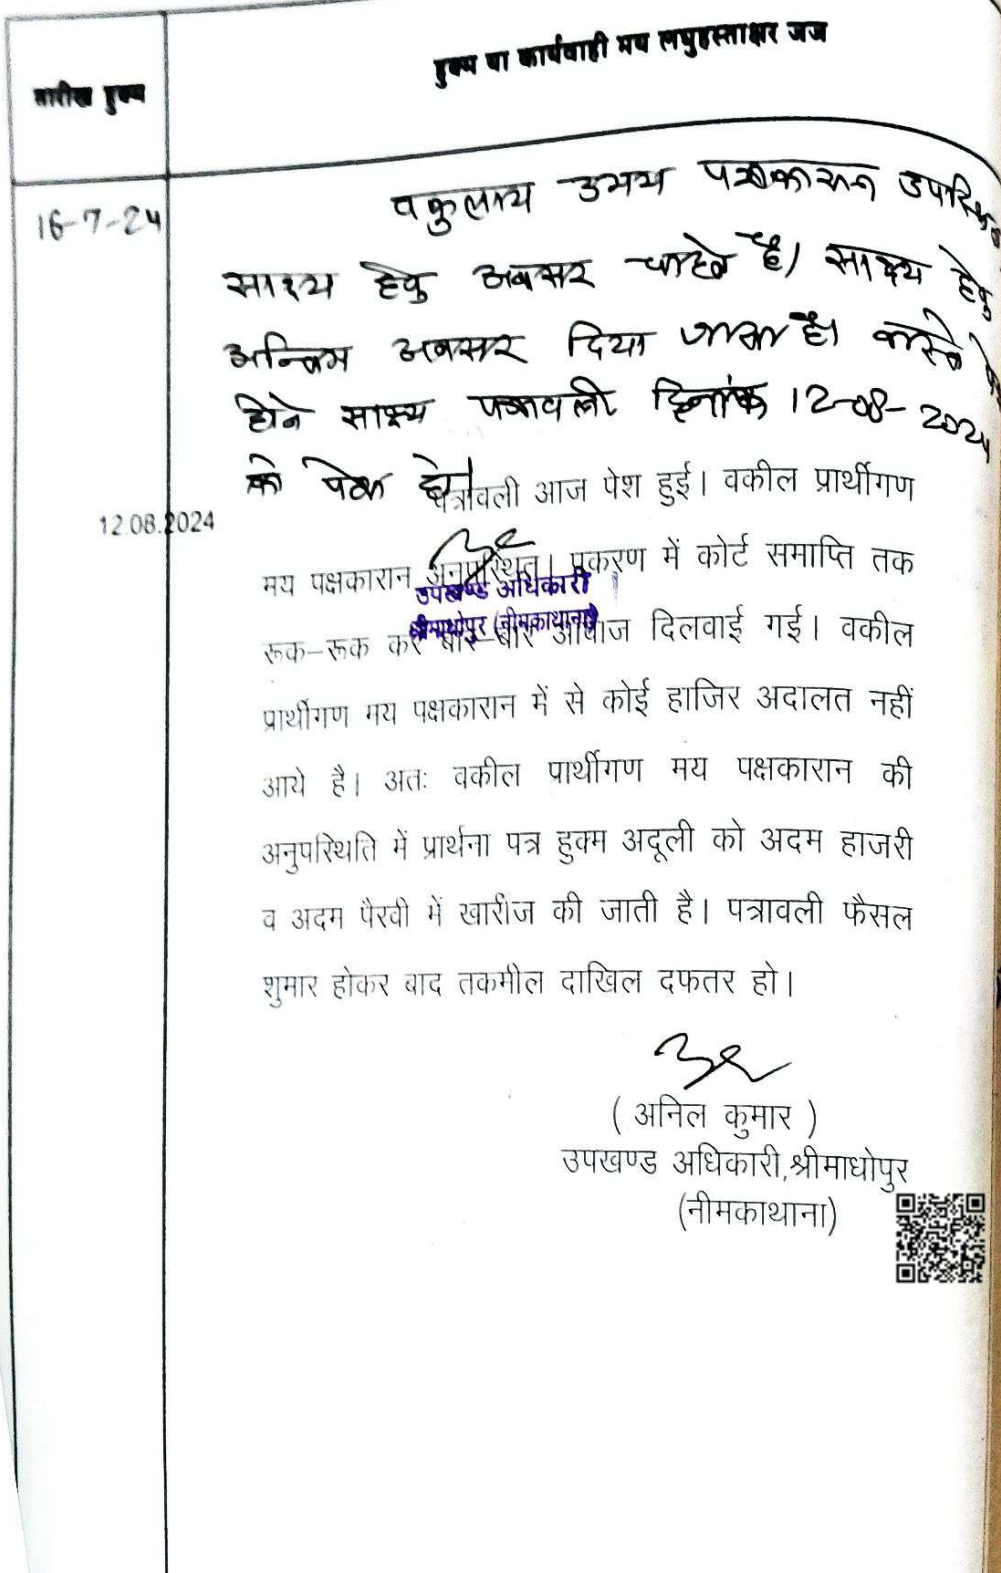 तारीख हुक्म
हुक्म या कार्यवाही मय लघुहस्ताक्षर जज
16-7-24
वकुलाय उभय पक्षकारान उपस्थित
साक्ष्य हेतु अवसर चाहते है। साक्ष्य हेतु
अन्तिम अवसर दिया जाता है। वास्ते
होने साक्ष्य पत्रावली दिनांक 12-08-2024
को पेश हो।
12.08.2024
पत्रावली आज पेश हुई। वकील प्रार्थीगण
मय पक्षकारान अनुपस्थित। प्रकरण में कोर्ट समाप्ति तक
उपखण्ड अधिकारी
श्रीमाधोपुर (नीमकाथाना)
रूक–रूक कर बार–बार आवाज दिलवाई गई। वकील
प्रार्थीगण मय पक्षकारान में से कोई हाजिर अदालत नहीं
आये है। अतः वकील पार्थीगण मय पक्षकारान की
अनुपस्थिति में प्रार्थना पत्र हुक्म अदूली को अदम हाजरी
व अदम पैरवी में खारीज की जाती है। पत्रावली फैसल
शुमार होकर बाद तकमील दाखिल दफतर हो।
( अनिल कुमार )
उपखण्ड अधिकारी,श्रीमाधोपुर
(नीमकाथाना)